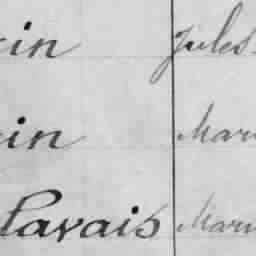 cin Jules
cin Mari
Pavais Mari